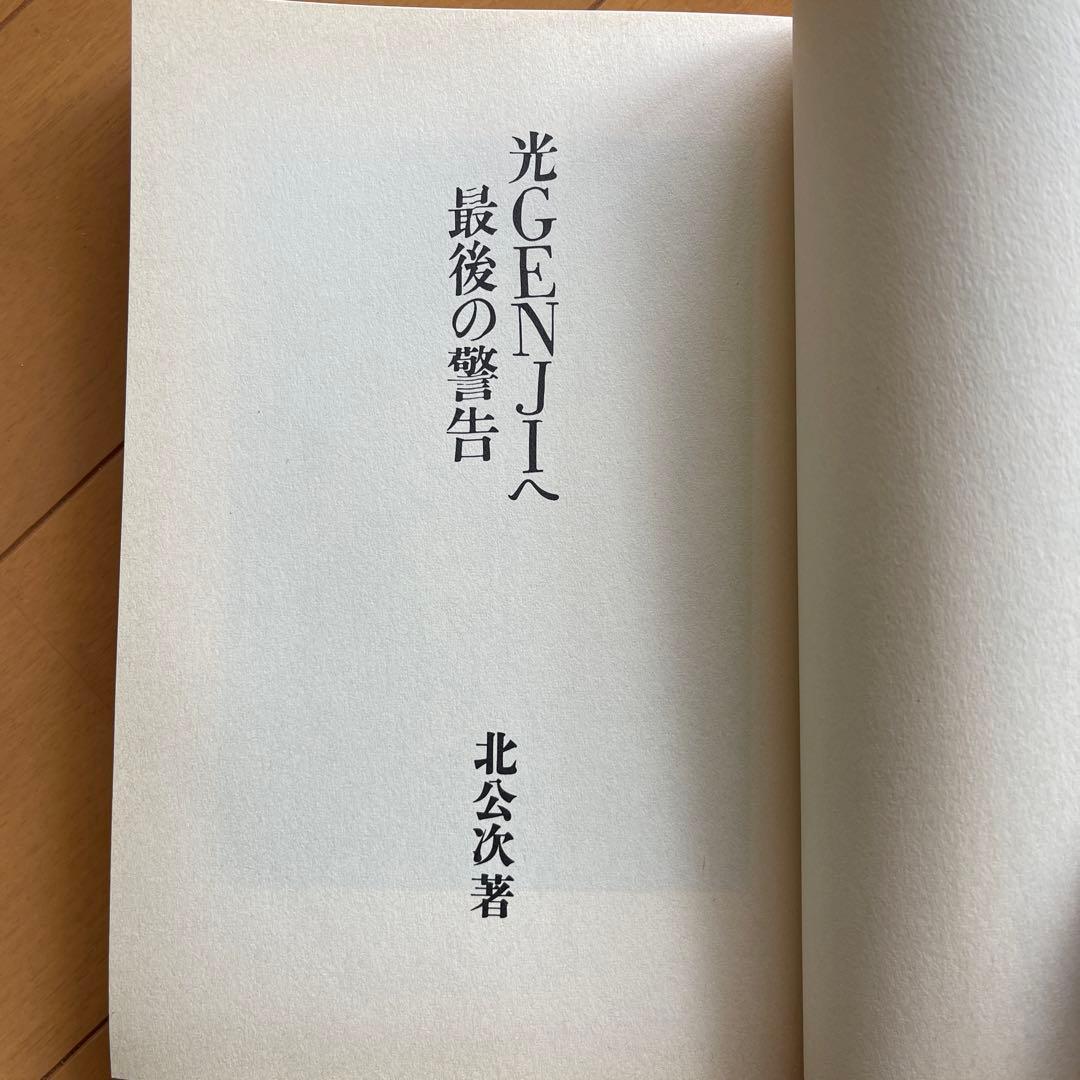 光GENJIへ
最後の警告
北公次著